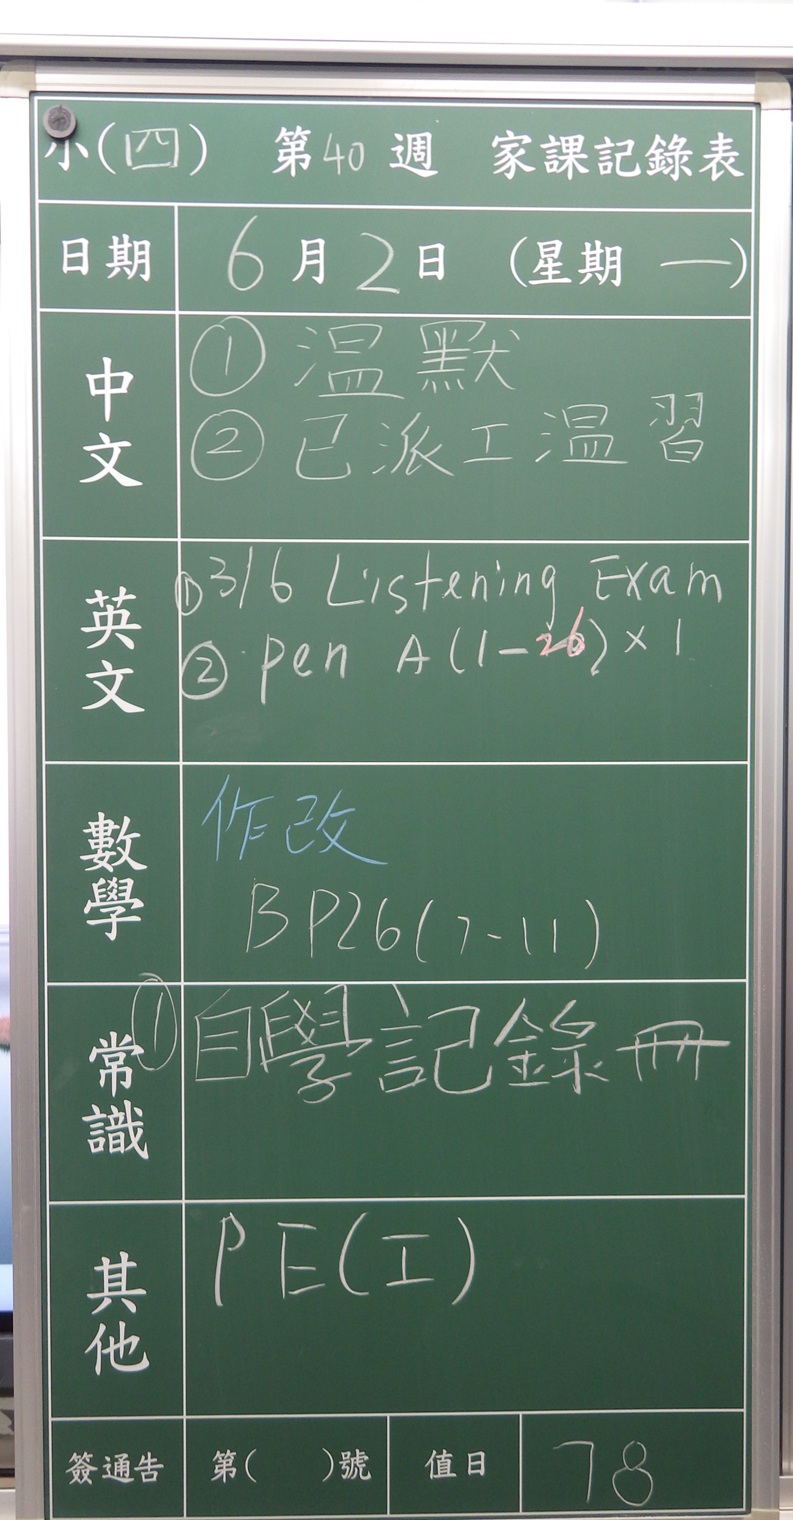 小(四) 第40週 家課記錄表
日期 6月2日 (星期一)
中文
① 温默
② 已派工温習
英文
① 3/6 Listening Exam
② pen A(1-26)×1
數學
作改
BP26(7-11)
常識
① 自學記錄冊
其他
PE(工)
簽通告 第( )號 值日 78